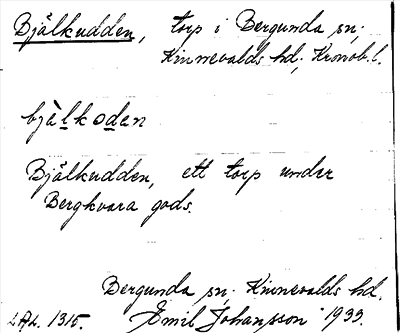 Bjälkudden, torp i Bergunda sn;
Kinnevalds hd; Kronob. l.
bjä̀lkodan
Bjälkudden, ett torp under
Bergkvara gods.
Bergunda sn; Kinnevalds hd.
LAL. 1315. Emil Johansson 1933.